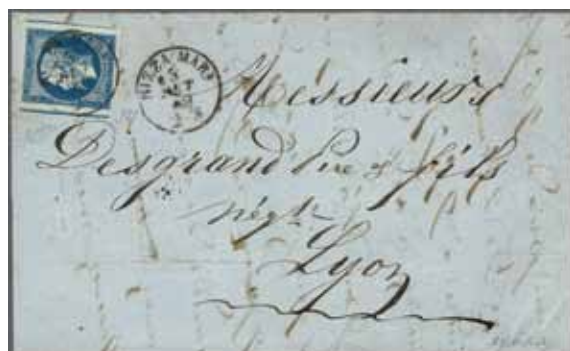 NIZZA MARª
Messieurs
Desgrand Pre & fils
négts
Lyon